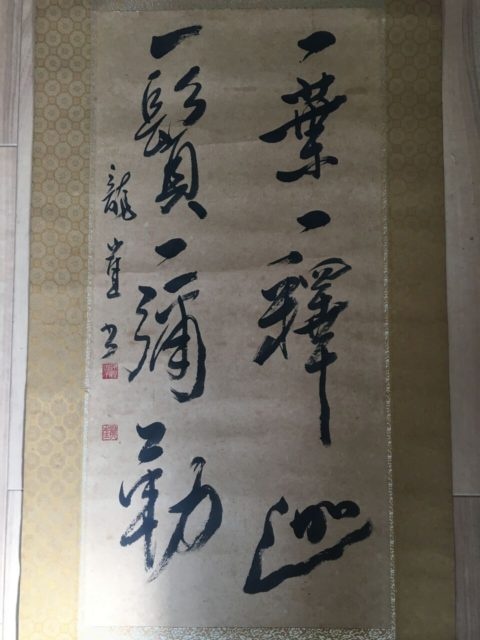 一葉一釋迦
一鬚一彌勒
龍崖書